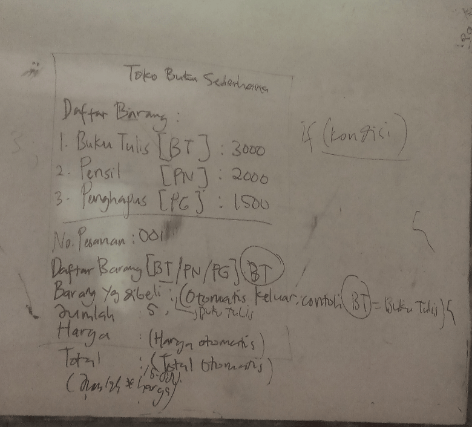 Toko Buku Sederhana
Daftar Barang :
1. Buku Tulis [BT] : 3000
2. Pensil [PN] : 2000
3. Penghapus [PG] : 1500
if (kondisi)
{
No. Pesanan : 001
Daftar Barang [BT/PN/PG] BT
Barang yg dibeli : (Otomatis keluar. contoh BT = Buku Tulis) {
Jumlah : 5 Buku Tulis
Harga : (Harga otomatis)
Total : (Total Otomatis)
(Jumlah * harga)